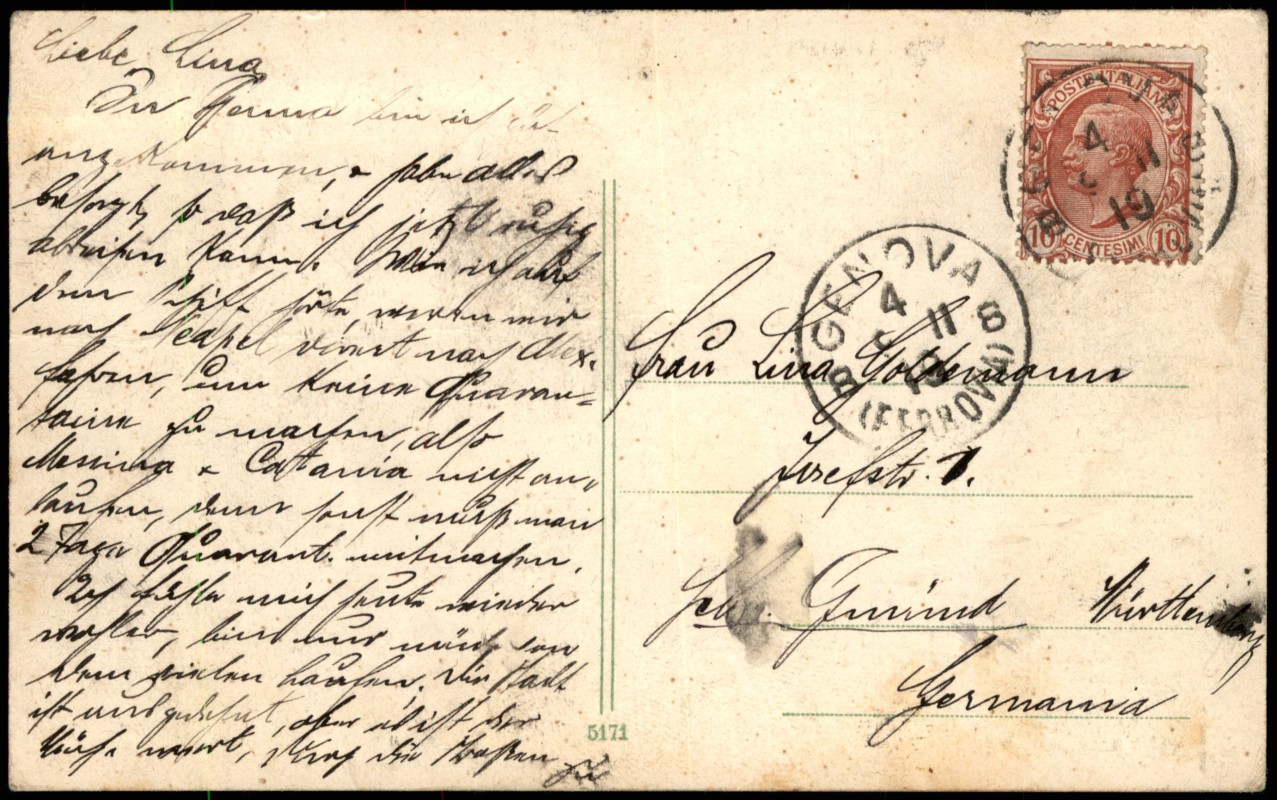 Liebe Lina
In Genua bin ich gut
angekommen, & habe alles
besorgt, so daß ich jetzt ruhig
abreisen kann. Wie ich auf
dem Schiff hörte, werden wir
nach Neapel direct nach Alex.
fahren, um keine Quaran=
taine zu machen, also
Messina & Catania nicht an„
laufen, denn sonst muß man
2 Tage Quarant. mitmachen.
Ich fühle mich heute wieder
wohler, bin nur müde von
dem vielen Laufen. Die Stadt
ist ausgedehnt, aber es ist der
Mühe wert, durch die Straßen
zu
5171
POSTE ITALIANE
10 CENTESIMI 10
4 11 19
GENOVA
4 11
19
(FERROVIA)
Frau Lina Goldemann
Josefstr. 1.
Gmünd Württemberg
Germania